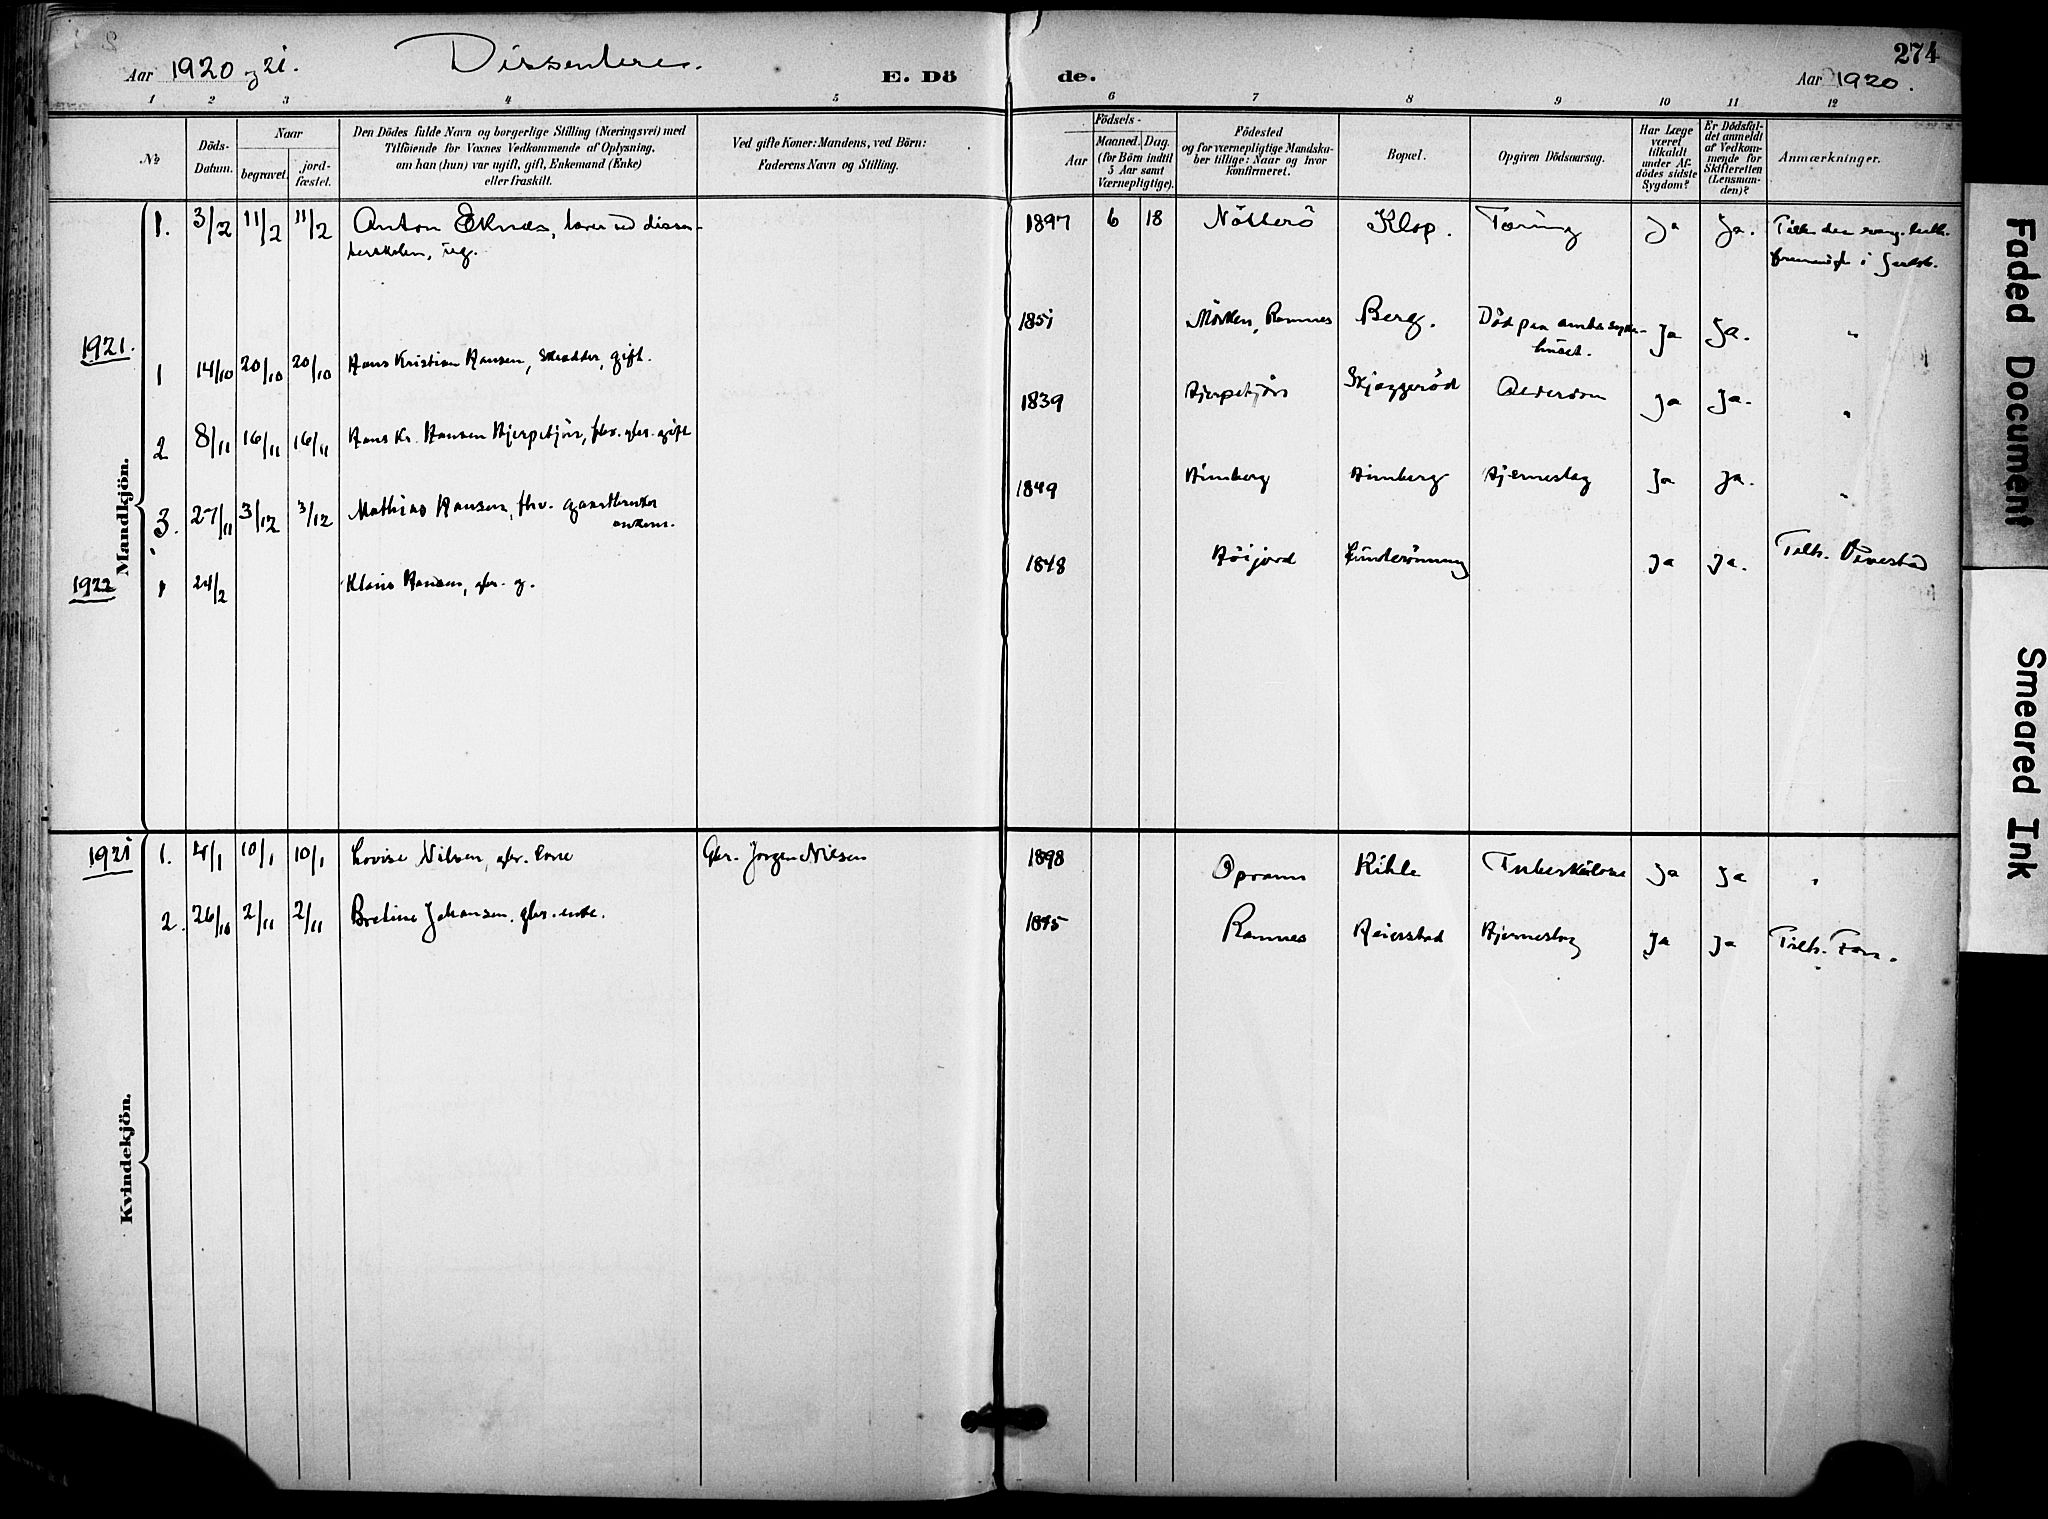 Aar 1920 og 21. Dissentere. E. Dö de. Aar 1920. 274
1 2 3 4 5 6 7 8 9 10 11 12
No
Döds-
Datum.
Naar
begravet.
jord-
fæstet.
Den Dödes fulde Navn og borgerlige Stilling (Næringsvei) med
Tilföiende for Voxnes Vedkommende af Oplysning,
om han (hun) var ugift, gift, Enkemand (Enke)
eller fraskilt.
Ved gifte Koner: Mandens, ved Börn:
Faderens Navn og Stilling.
Födsels-
Aar
Maaned. Dag.
(for Börn indtil
5 Aar samt
Værnepligtige).
Födested
og for værnepligtige Mandska-
ber tillige: Naar og hvor
konfirmeret.
Bopæl.
Opgiven Dödsaarsag.
Har Læge
været
tilkaldt
under Af-
dödes sidste
Sygdom?
Er Dödsfal-
det anmeldt
af Vedkom-
mende for
Skifteretten
(Lensman-
den)?
Anmærkninger.
Mandkjön.
1. 3/2 11/2 11/2 Anton Eknes, lærer ved dissen-
terskolen, ug.
1897 6 18 Nötterö Klop. Tæring Ja Ja. Tilh. den evang. luth.
frimenigh. i Jarlsb.
1921.
1 14/10 20/10 20/10 Hans Kristian Hansen, skrædder, gift.
1851 Mörken, Ramnes Berg. Död paa amtssyke-
huset. Ja Ja. "
2 8/11 16/11 16/11 Hans Kr. Hansen Hjerpetjön, fhv. gbr. gift
1839 Hjerpetjön Skjeggeröd Alderdom Ja Ja. "
3. 27/11 3/12 3/12 Mathias Hansen, fhv. gaardbruker
enkem.
1849 Himberg Himberg Hjerneslag Ja Ja. "
1922
1 24/2 Klaus Hansen, gbr. g.
1848 Höijord Ja Ja. Tilh. Vivestad
Kvindekjön.
1921 1. 4/1 10/1 10/1 Lovise Nilsen, gbr. kone Gbr. Jørgen Nilsen
1898 Opramn Kihle Tuberkulose Ja Ja "
2. 26/10 2/11 2/11 Bretine Johansen. gbr. enke.
1845 Ramnes Reierstad Hjerneslag Ja Ja Tilh. Fon.
Faded Document
Smeared Ink